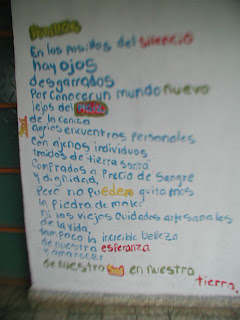 Pasillos
En los pasillos del silencio
hay ojos
desgarrados
por conocer un mundo nuevo
lejos del
de la ceniza
agrios encuentros personales
con ajenos individuos
traidos de tierra santa
Comprados a Precio de Sangre
y dignidad,
Pero no pueden quitarnos
la piedra de moler
ni los viejos cuidados artesanales
de la vida,
tampoco la increible belleza
de nuestra esperanza
y amanecer
de nuestro en nuestra
tierra.